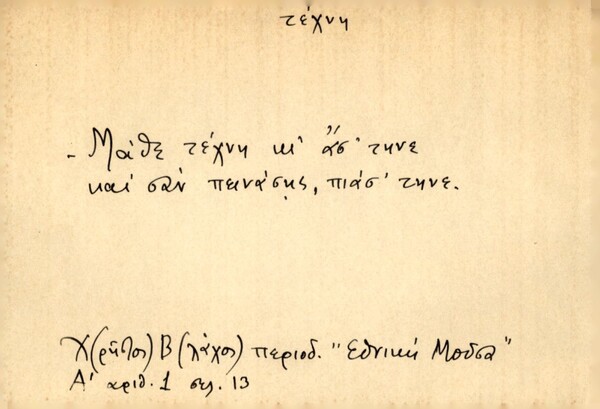 τέχνη
- Μάθε τέχνη κι' ἄσ' τηνε
καί σάν πεινάσῃς, πιάσ' τηνε.
Χ(ρῆστος) Β(λάχος) περιοδ. "Εθνική Μοῦσα"
Α' αριθ. 1 σελ. 13